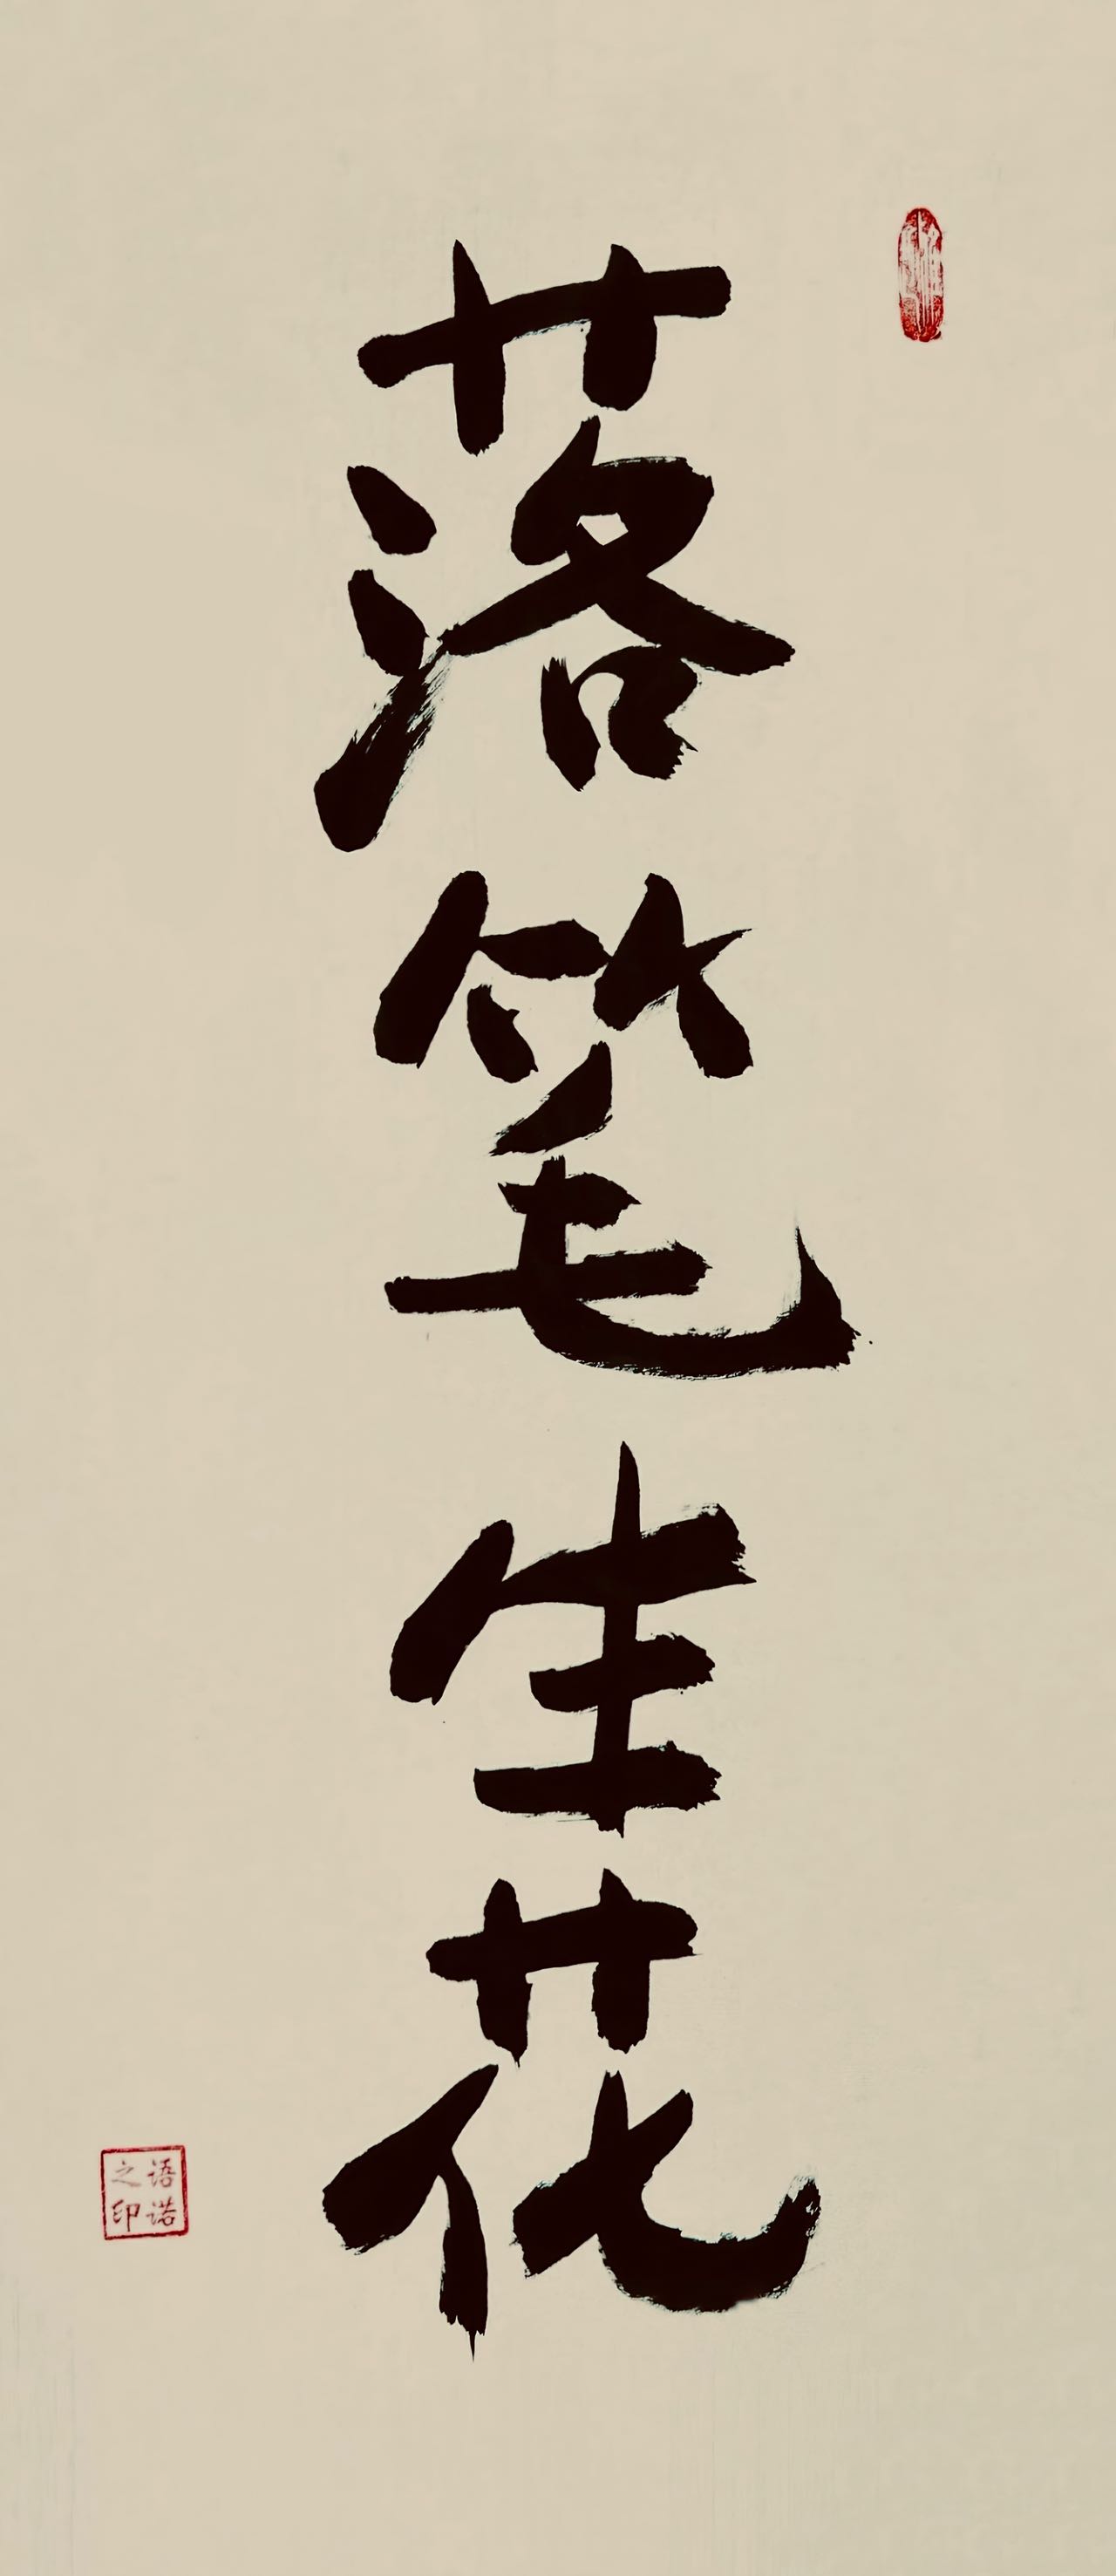 落笔生花
语诺
之印